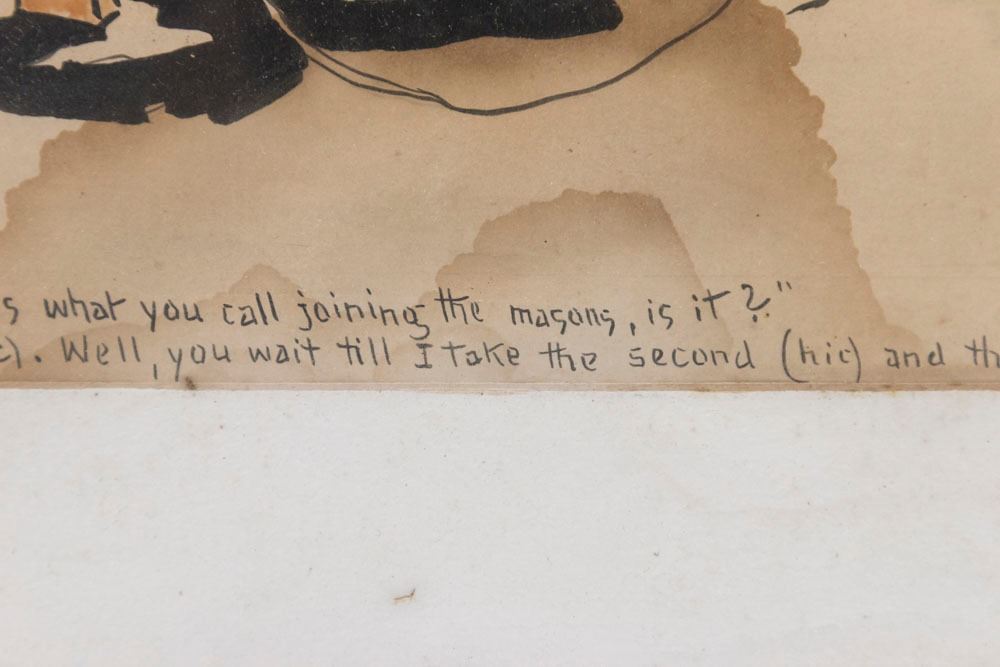 s what you call joining the masons, is it?"
c). Well, you wait till I take the second (hic) and th